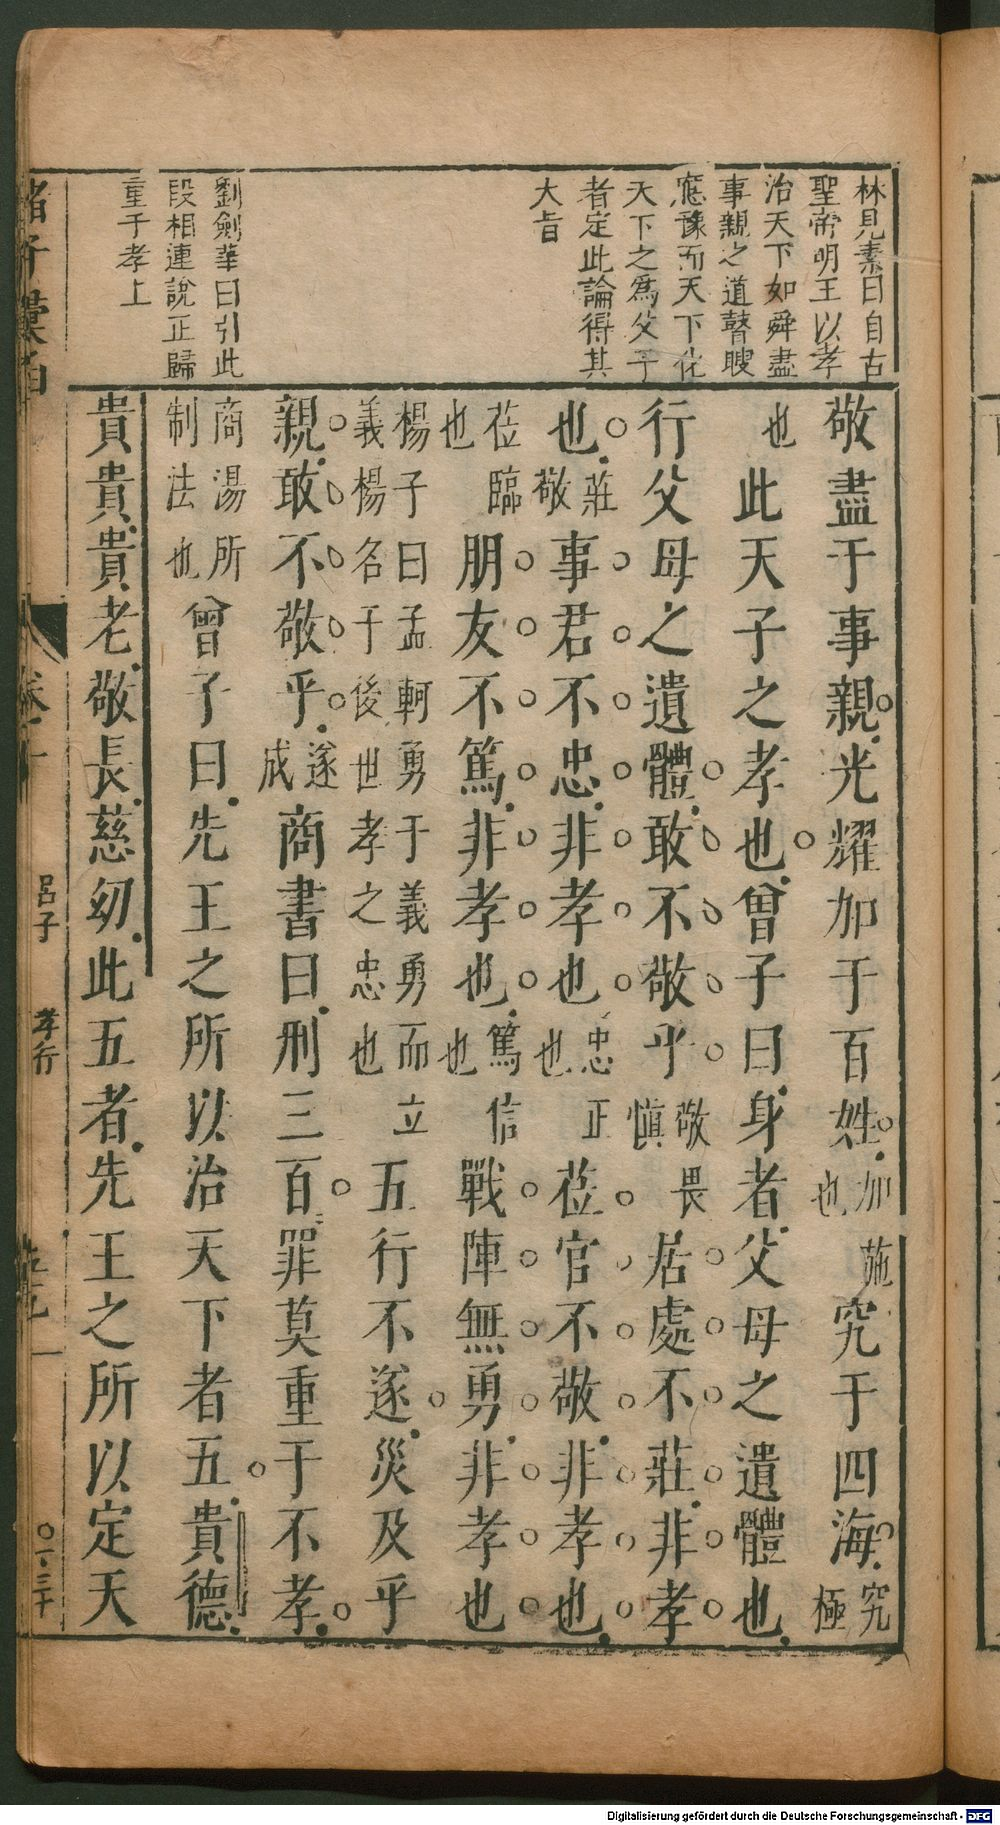 林見素曰自古
聖帝明王以孝
治天下如舜盡
事親之道瞽瞍
底豫而天下化
天下之為父子
者定此論得其
大旨
劉劍華曰引此
段相連說正歸
重于孝上
敬盡于事親光耀加于百姓加施也究于四海究極
也此天子之孝也曾子曰身者父母之遺體也
行父母之遺體敢不敬乎敬畏慎居處不莊非孝
也莊敬事君不忠非孝也忠正也莅官不敬非孝也
莅臨也朋友不篤非孝也篤信也戰陣無勇非孝也
楊子曰孟軻勇于義勇而立義楊名于後世孝之忠也五行不遂災及乎
親敢不敬乎遂成商書曰刑三百罪莫重于不孝
商湯所制法也曾子曰先王之所以治天下者五貴德
貴貴貴老敬長慈幼此五者先王之所以定天
諸子彙函
呂子 孝行
Digitalisierung gefördert durch die Deutsche Forschungsgemeinschaft - DFG